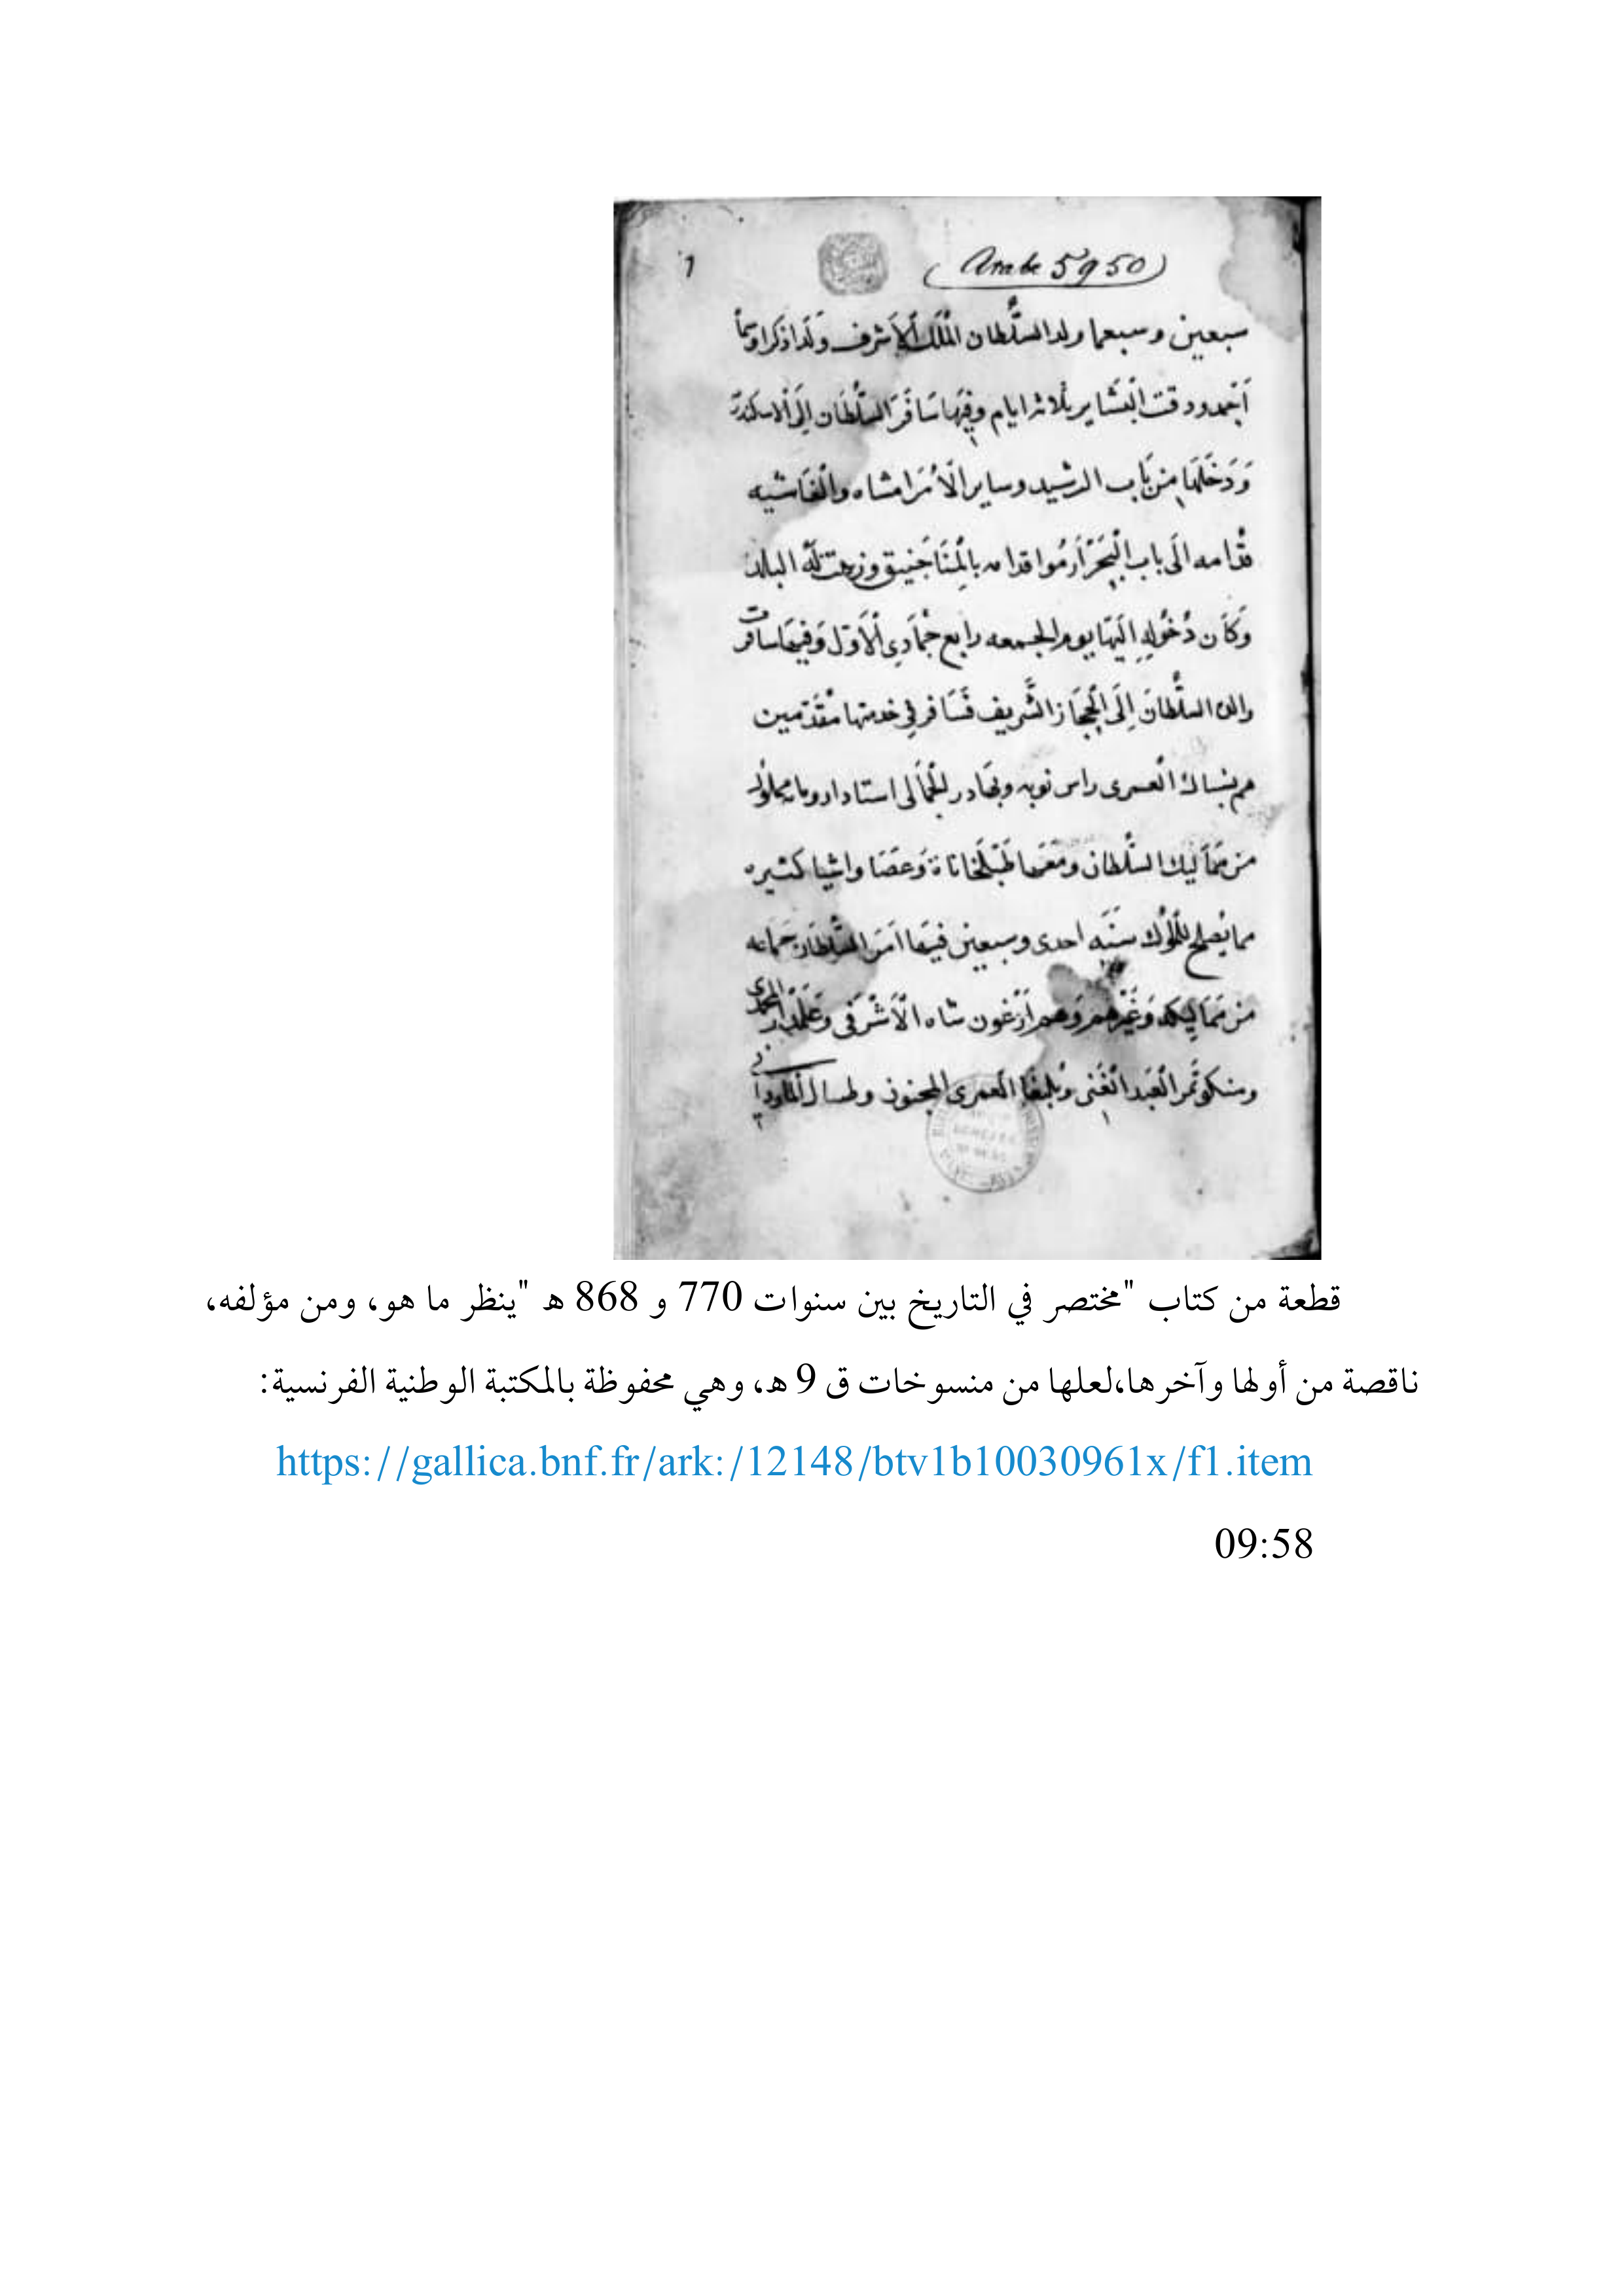 1
(Arabe 5950)
سبعين وسبعما ولد السُّلطان الْمَلَك الاَشرف وَلَدا ذكرا وسماً
اَحْمد ودقت الْبَشَاير ثلاثه ايام وفيَها سَافَرَ السُّلْطَان اِلَى الاسكندرية
وَدَخَلَهَا مِنْ بَاب الرشيد وساير الْأُمَرا مشاه والْغَاشيه
قُدامه الَى باب الْبَحَرْ اَرمُوا قدامه بالْمنَاجَنيق وزينت لَهُ البلد
وَكَاَن دُخُولِهِ اليَهَا يوم الجمعه رابع جُمَادِي الْأَوّل وَفيهَا سافرت
والده السُّلْطَان اِلَى الْحِجَاز الشَّريف فَسَافر في خدمتها مقَدّمين
هم بشتاك الْعمرى راس نوبه وبَهَادر الْجَمالى استادار ومايه مملوك
من مَمَاليك السُّلْطان ومَعَهَا طَبْلَخَانَاة وَعصَا واشيا كثيره
مما يُصلح لِلْمُلوْك سَنَه احدى وسبعين فيهَا اَمَر السُّلْطَان جَماعه
من مَمَاليكه وَغَيْرهم وَهم اَرْغون شاه الْأَشْرَفى وَعَلَمْدار المحمدى
ومنكوتَمر الْعَبد الْغَنى وَيلبغَا الْعمرى المجنون
قطعة من كتاب "مختصر في التاريخ بين سنوات 770 و 868 هـ "ينظر ما هو، ومن مؤلفه،
ناقصة من أولها وآخرها،لعلها من منسوخات ق 9 هـ، وهي محفوظة بالمكتبة الوطنية الفرنسية:
https://gallica.bnf.fr/ark:/12148/btv1b10030961x/f1.item
09:58